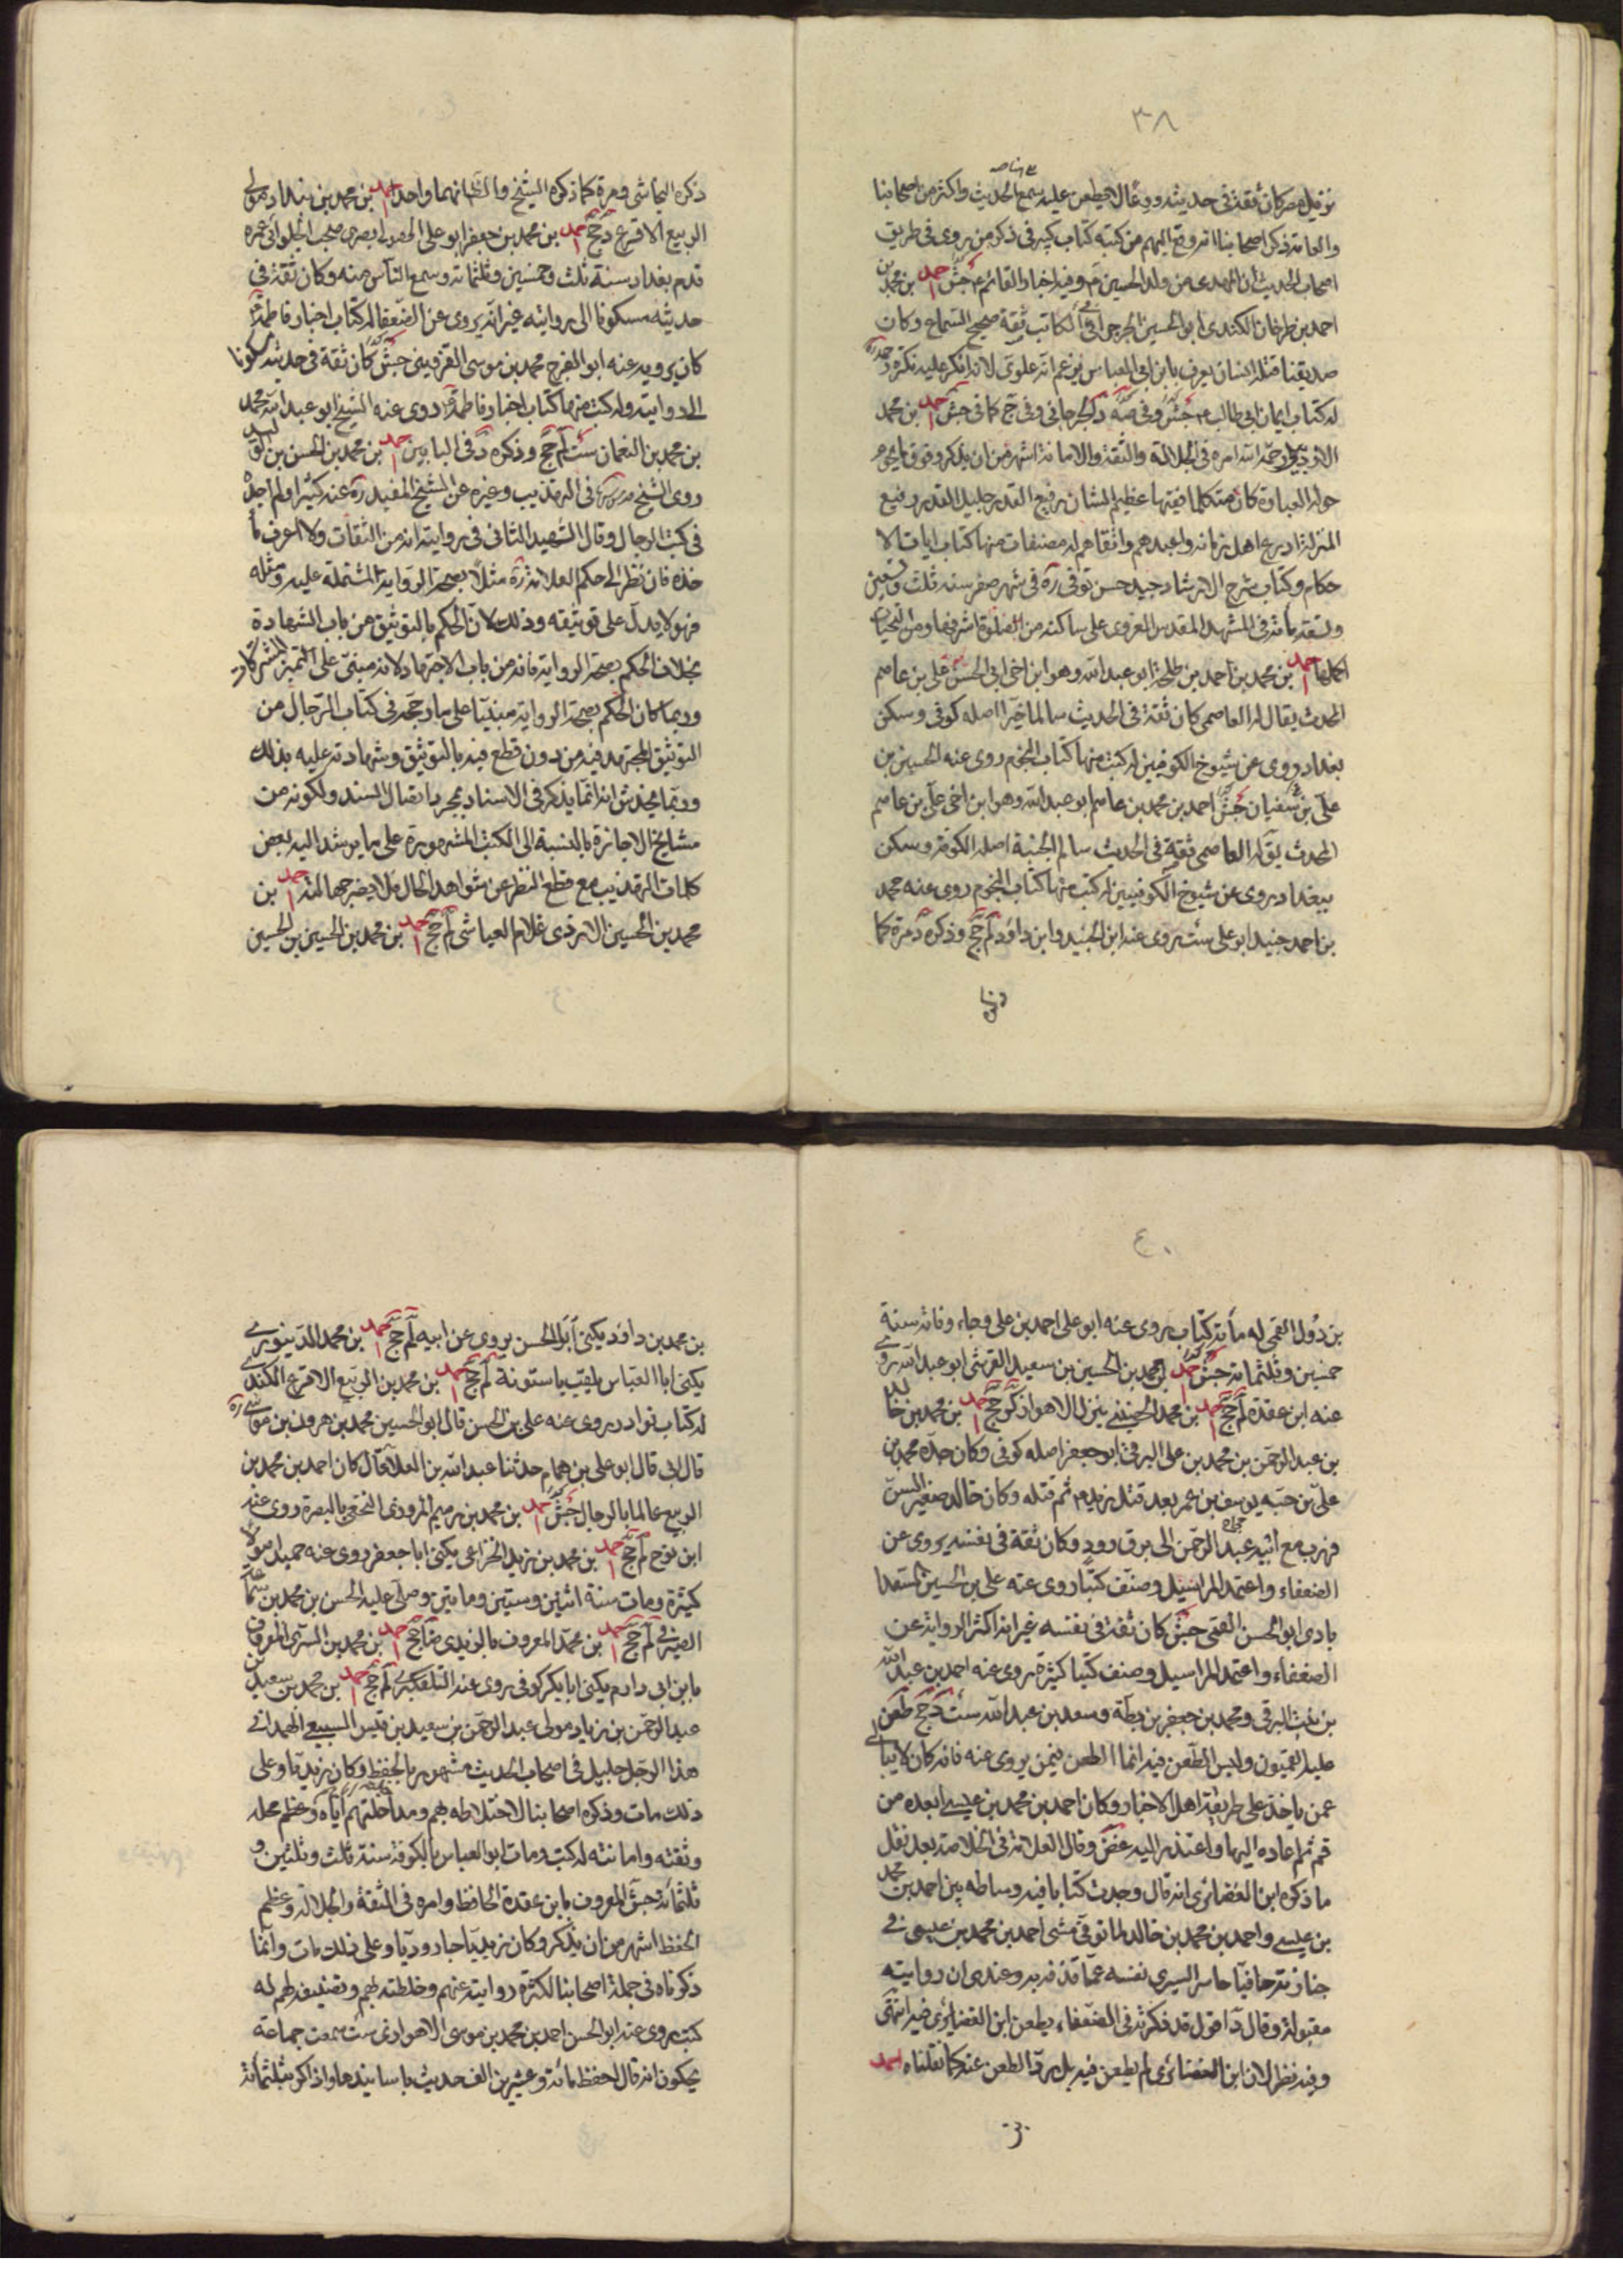 ٣٨
نزيل مصر كان ثقة في حديثه ورعا لا يطعن عليه سمع الحديث واكثر من اصحابنا
والعامة ذكر اصحابنا انه وقع اليهم من كتبه كتاب كبير في ذكر من روى في طريق
اصحاب الحديث ان المهدى من ولد الحسين ع وفيه اخبار القائم ع جش احمد بن محمد بن
احمد بن طرخان الكندى ابو الحسين الجرجرائي الكاتب ثقة صحيح السماع وكان
صديقنا قتله انسان يعرف بابن ابي العباس يزعم انه علوى لانه انكر عليه نكرة
له كتاب ايمان ابي طالب ع جش وفي الجرجاني وفي جخ كما في جش احمد بن محمد
الاردبيلي رحمه الله امره في الجلالة والثقة والامانة اشهر من ان يذكر وفوق ما يحوم
حوله العبارة كان متكلما فقيها عظيم الشان رفيع القدر جليل القدر رفيع
المنزلة اورع اهل زمانه واعبدهم واتقاهم له مصنفات منها كتاب ايات الا
حكام وكتاب شرح الارشاد جيد حسن توفى ره في شهر صفر سنه ثلث وتسعين
وتسعة مائة في المشهد المقدس الغروى على ساكنه من الصلوة اشرفها ومن التحيات
اكملها احمد بن محمد بن احمد بن طلحة ابو عبد الله وهو ابن اخى ابي الحسن على بن عاصم
المحدث يقال له العاصمى كان ثقة في الحديث سالما خيرا اصله كوفى وسكن
بغداد وروى عن شيوخ الكوفيين له كتب منها كتاب النجوم روى عنه الحسين بن
على بن سفيان جش احمد بن محمد بن عاصم ابو عبد الله وهو ابن اخى على بن عاصم
المحدث يق له العاصمى ثقة في الحديث سالم الجنبة اصله الكوفة وسكن
ببغداد وروى عن شيوخ الكوفيين له كتب منها كتاب النجوم روى عنه محمد
بن احمد جنيد ابو على ست روى عنه ابن الجنيد وابن داود لم جخ وذكره د مرة كما
ذكره النجاشى ومرة كما ذكره الشيخ والظ انهما واحد احمد بن محمد بن بندار مولى
الربيع الاقرع دي جخ احمد بن محمد بن جعفر ابو على الصولى بصرى صحب الجلودى عمره
قدم بغداد سنة ثلث وخمسين وثلثمائة وسمع الناس منه وكان ثقة في
حديثه مسكونا الى روايته غير انه يروى عن الضعفا له كتاب اخبار فاطمة
كان يرويه عنه ابو الفرج محمد بن موسى القزوينى جش كان ثقة في حديثه مسكونا
الى روايته وله كتب منها كتاب اخبار فاطمة ع روى عنه الشيخ ابو عبد الله محمد
بن محمد بن النعمان ست لم جخ وذكره د في البابين احمد بن محمد بن الحسن بن الوليد
روى الشيخ في التهذيب وغيره عن الشيخ المفيد ره عنه كثيرا ولم اجده
في كتب الرجال وقال الشهيد الثانى في روايته انه من الثقات ولا اعرف ما
خذه فان نظر الى حكم العلامة ره مثلا بصحة الرواية المشتملة عليه ومثله
فهو لا يدل على توثيقه وذلك لان الحكم بالتوثيق من باب الشهادة
بخلاف الحكم بصحة الرواية فانه من باب الاجتهاد لانه مبنى على التميز المشتركات
وربما كان الحكم بصحة الرواية مبنيا على ما رجحه في كتاب الرجال من
التوثيق المجتهد فيه من دون قطع فيه بالتوثيق وشهادته عليه بذلك
وربما يخدش انه انما يذكر في الاسناد بمجرد اتصال السند ولكونه من
مشايخ الاجازة بالنسبة الى الكتب المشهورة على ما يرشد اليه بعض
كلمات التهذيب مع قطع النظر عن شواهد الحال احمد بن
محمد بن الحسين الازدى غلام العياشى لم جخ احمد بن محمد بن الحسين بن الحسين
٤٠
بن دؤل القمى له مأته كتاب روى عنه ابو على احمد بن على وجاء وفاته سنة
خمسين وثلثمائة جش احمد بن محمد بن الحسين بن سعيد القرشى ابو عبد الله روى
عنه ابن عقدة لم جخ احمد بن محمد الحضينى ينزل الاهواز كر جخ احمد بن محمد بن خالد
بن عبد الرحمن بن محمد بن على البرقى ابو جعفر اصله كوفى وكان جده محمد بن
على حبسه يوسف بن عمر بعد قتل زيد ع ثم قتله وكان خالد صغير السن
فهرب مع ابيه عبد الرحمن الى برق رود وكان ثقة في نفسه يروى عن
الضعفاء واعتمد المراسيل وصنف كتبا روى عنه على بن الحسين السعدا
بادى ابو الحسن القمى جش كان ثقة في نفسه غير انه اكثر الرواية عن
الضعفاء واعتمد المراسيل وصنف كتبا كثيرة روى عنه احمد بن عبد الله
بن بنت البرقى ومحمد بن جعفر بن بطة وسعد بن عبد الله ست دي جخ طعن
عليه القميون وليس الطعن فيه انما الطعن فيمن يروى عنه فانه كان لا يبالى
عمن ياخذ على طريقة اهل الاخبار وكان احمد بن محمد بن عيسى ابعده من
قم ثم اعاده اليها واعتذر اليه غض وقال العلامة في الخلاصة بعد نقل
ما ذكره ابن الغضائرى انه قال وجدت كتابا فيه وساطه بين احمد بن محمد
بن عيسى واحمد بن محمد بن خالد لما توفى مشى احمد بن محمد بن عيسى في
جنازته حافيا حاسرا ليبرى نفسه عما قذفه به وعندى ان روايته
مقبولة وقال د اقول قد ذكرته في الضعفاء بطعن ابن الغضائرى فيه انتهى
وفيه نظر لان ابن الغضائرى لم يطعن فيه بل يرد الطعن عنه كما نقلناه احمد
بن محمد بن داود يكنى ابا الحسن يروى عن ابيه لم جخ احمد بن محمد الدينورى
يكنى ابا العباس يلقب باستونة لم جخ احمد بن محمد بن الربيع الاقرع الكندى
له كتاب نوادر روى عنه على بن الحسن قال ابو الحسين محمد بن هرون بن موسى ره
قال ابى قال ابو على بن همام حدثنا عبد الله بن العلا قال كان احمد بن محمد بن
الربيع عالما بالرجال جش احمد بن محمد بن رميم المروذى النخعى بالبصرة روى عنه
ابن نوح لم جخ احمد بن محمد بن يزيد الخزاعى يكنى ابا جعفر روى عنه حميد اصولا
كثيرة ومات سنة اثنين وستين ومايتين وصلى عليه الحسن بن محمد بن سماعة
الصيرفى لم جخ احمد بن محمد المعروف بالزيدى ضا جخ احمد بن محمد بن السرى المعروف
بابن ابى دارم يكنى ابا بكر كوفى روى عنه التلعكبرى لم جخ احمد بن محمد بن سعيد بن
عبد الرحمن بن زياد مولى عبد الرحمن بن سعيد بن قيس السبيعى الهمدانى
هذا الرجل جليل في اصحاب الحديث مشهور بالحفظ وكان زيديا وعلى
ذلك مات وذكره اصحابنا لاختلاطه بهم ومداخلتهم اياه وعظم محله
وثقته وامانته له كتب ومات ابو العباس بالكوفة سنة ثلث وثلثين و
ثلثمائة جش المعروف بابن عقدة الحافظ وامره في الثقة والجلالة وعظم
الحفظ اشهر من ان يذكر وكان زيديا جاروديا وعلى ذلك مات وانما
ذكرناه في جملة اصحابنا لكثرة روايته عنهم وخلطته بهم وتصنيفه لهم له
كتب روى عنه ابو الحسن احمد بن محمد بن موسى الاهوازى ست سمعت جماعة
يحكون انه قال احفظ مائة وعشرين الف حديث باسانيدها واذاكر بثلثمائة